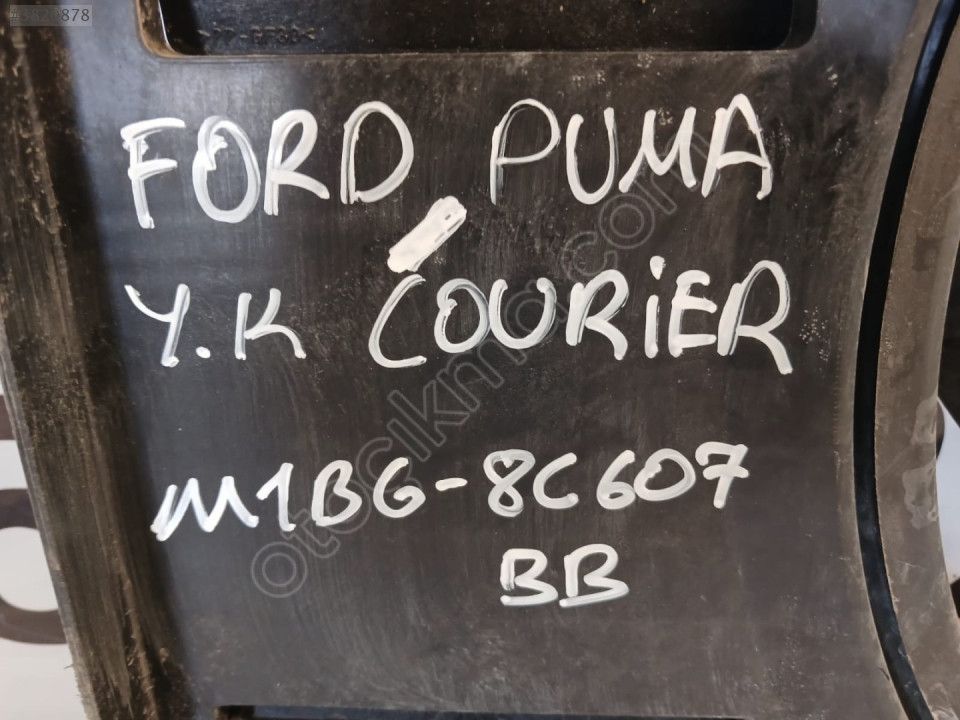 >PP-GF30<
FORD PUMA
Y.K COURİER
M1BG-8C607
BB
otocikmaci.com